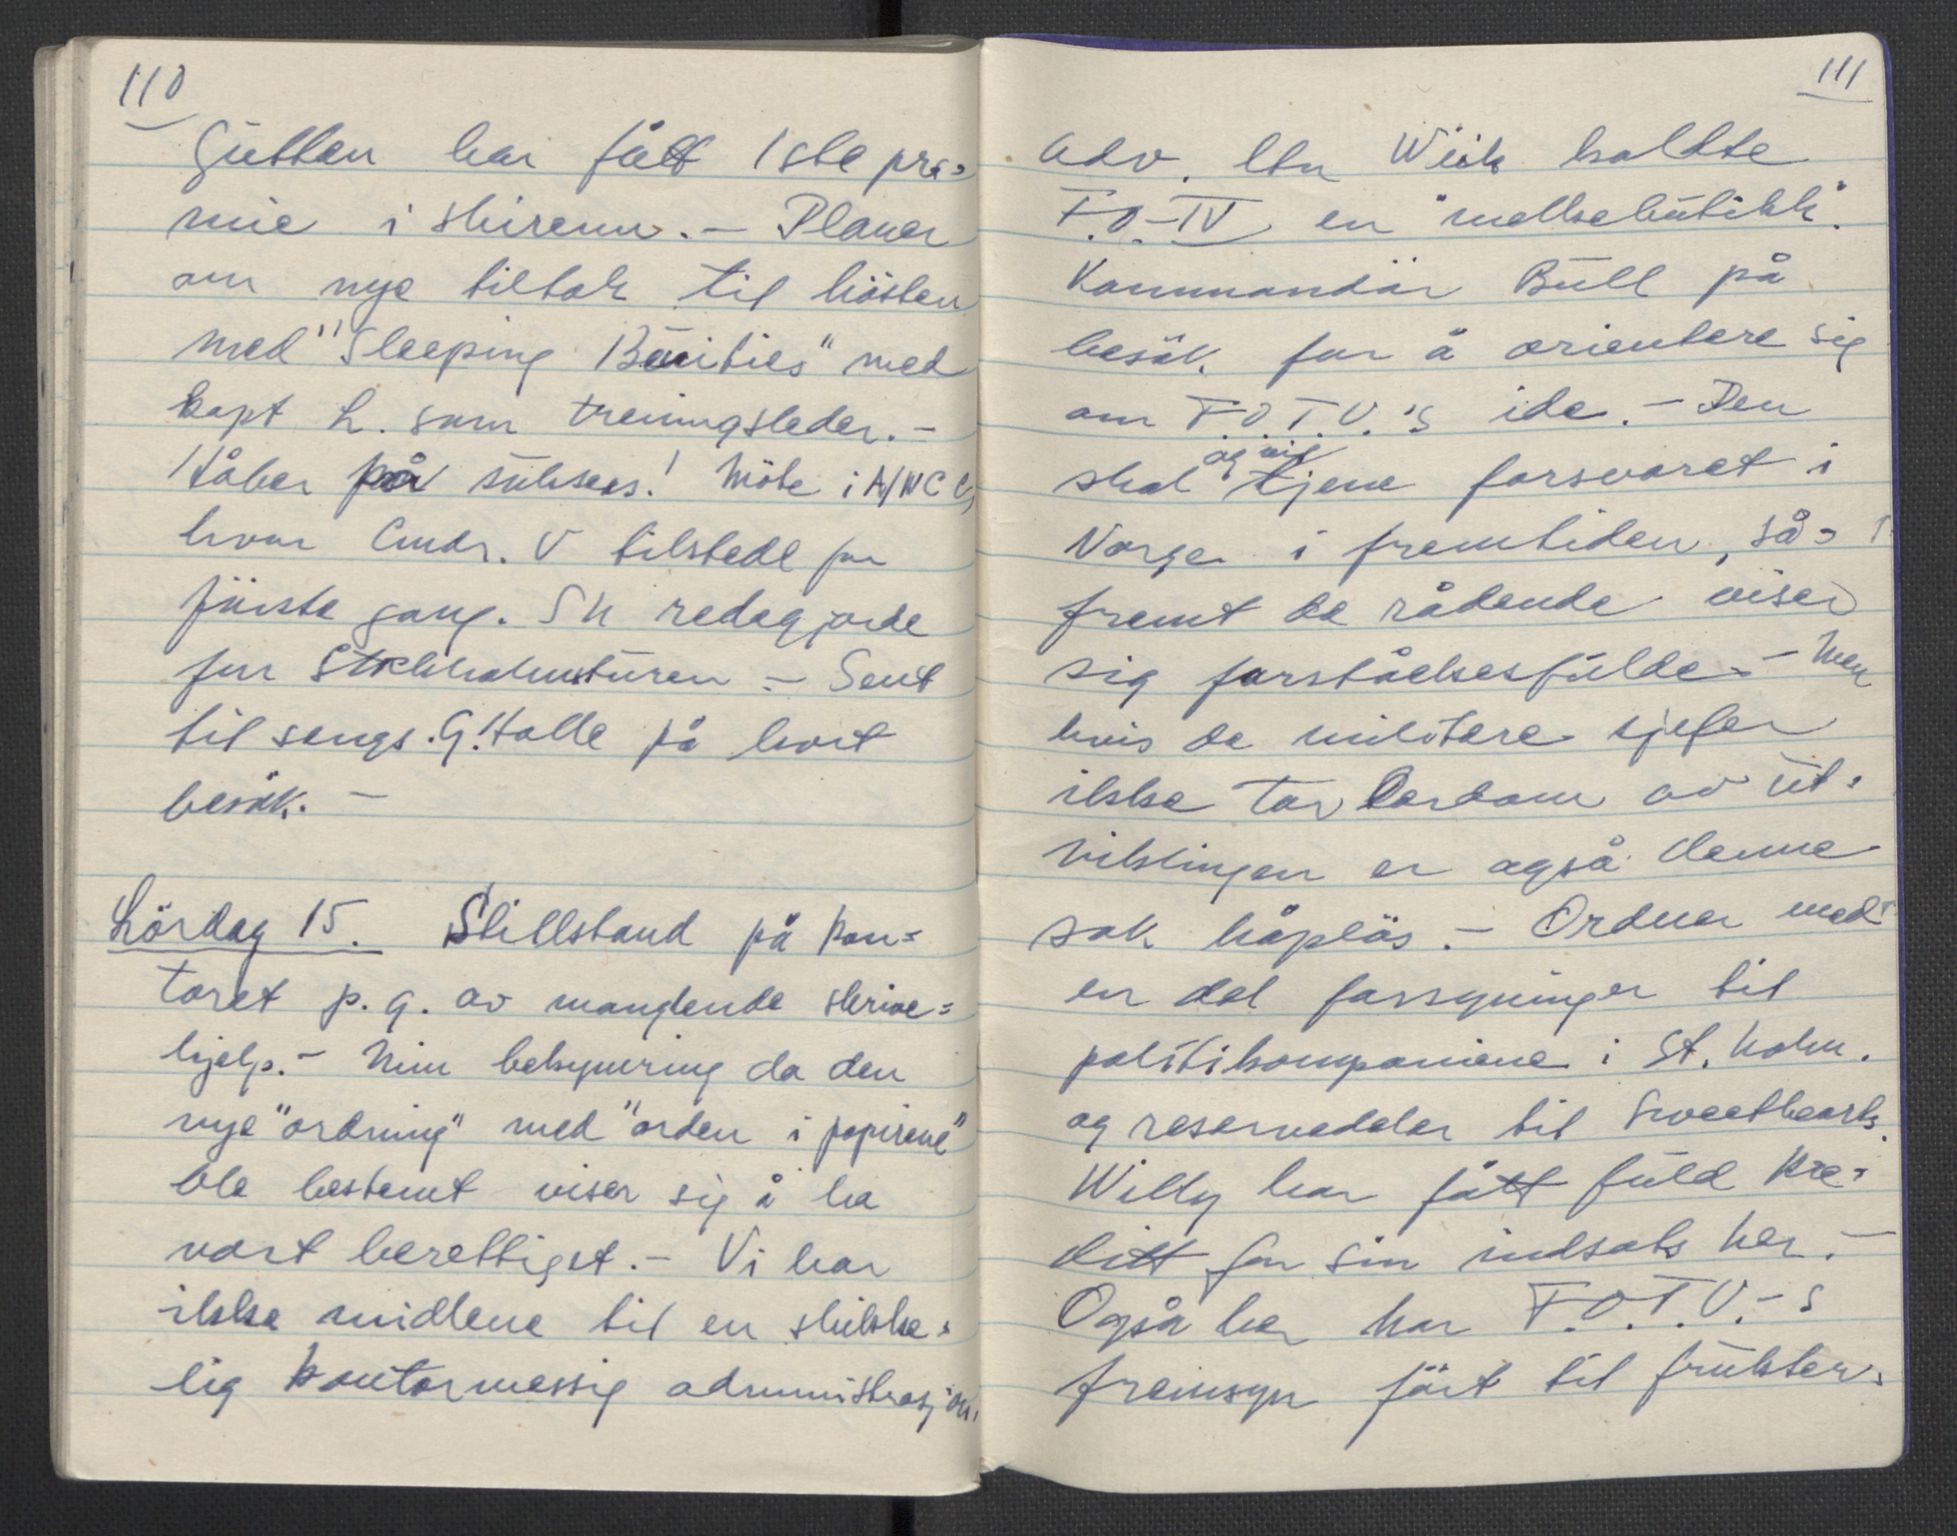 110
Gutten har fått 1ste pre=
mie i skirenn. – Planer
om nye tiltak til hösten
med "Sleeping Beuities" med
kapt L. som treningsleder. –
Håber på sukses! Möte i A/NCC,
hvor Cmdr. V tilstede for
förste gang. SN redegjorde
for Stockholmsturen – Sent
til sengs. G. Halle på kort
besök. –
Lördag 15. Stillstand på kon=
toret p. g. av manglende skrive=
hjelp. – Min bekymring da den
nye "ordning" med "orden i papirene"
ble bestemt viser sig å ha
vært berettiget. – Vi har
ikke midlene til en skikke=
lig kontormessig administrasjon.
111
Adv. ltn Wiik kaldte
F.O.–IV en "melkebutikk".
Kommandör Bull på
besök for å orientere sig
om F.O.T.U.'s ide. – Den
skal og vil tjene forsvaret i
Norge i fremtiden, så=
fremt de rådende viser
sig forståelsesfulde. – Men
hvis de militære sjefer
ikke tar lærdom av ut=
viklingen er også denne
sak håplös. – Ordner med
en del forsyninger til
politikompaniene i St. holm.
og reservedeler til Sweethearts.
Willy har fått fuld kre=
ditt for sin indsats her. –
Også her har F.O.T.U.–s
fremsyn fört til frukter.